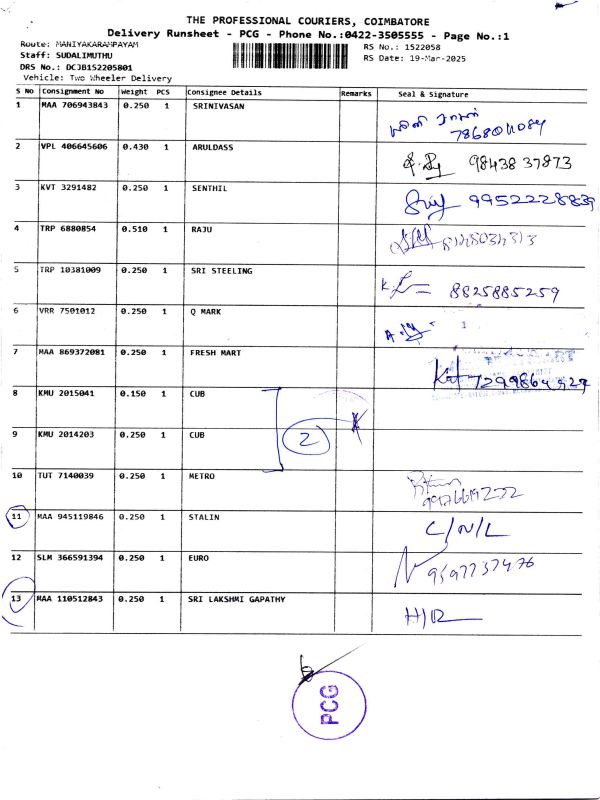 THE PROFESSIONAL COURIERS, COIMBATORE
Delivery Runsheet - PCG - Phone No.:0422-3505555 - Page No.:1
Route: MANIYAKARAMPAYAM
RS No.: 1522058
Staff: SUDALIMUTHU
RS Date: 19-Mar-2025
DRS No.: DCJB1S2205801
Vehicle: Two Wheeler Delivery
S No Consignment No Weight PCS Consignee Details Remarks Seal & Signature
1 MAA 706943843 0.250 1 SRINIVASAN
2 VPL 406645606 0.430 1 ARULDASS 98438 37873
3 KVT 3291482 0.250 1 SENTHIL 9952228839
4 TRP 6880854 0.510 1 RAJU
5 TRP 10381009 0.250 1 SRI STEELING 8825885259
6 VRR 7501012 0.250 1 Q MARK
7 MAA 869372081 0.250 1 FRESH MART
8 KMU 2015041 0.150 1 CUB
2
9 KMU 2014203 0.250 1 CUB
10 TUT 7140039 0.250 1 METRO
11 MAA 945119846 0.250 1 STALIN C/N/L
12 SLM 366591394 0.250 1 EURO
13 MAA 110512843 0.250 1 SRI LAKSHMI GAPATHY
PCG